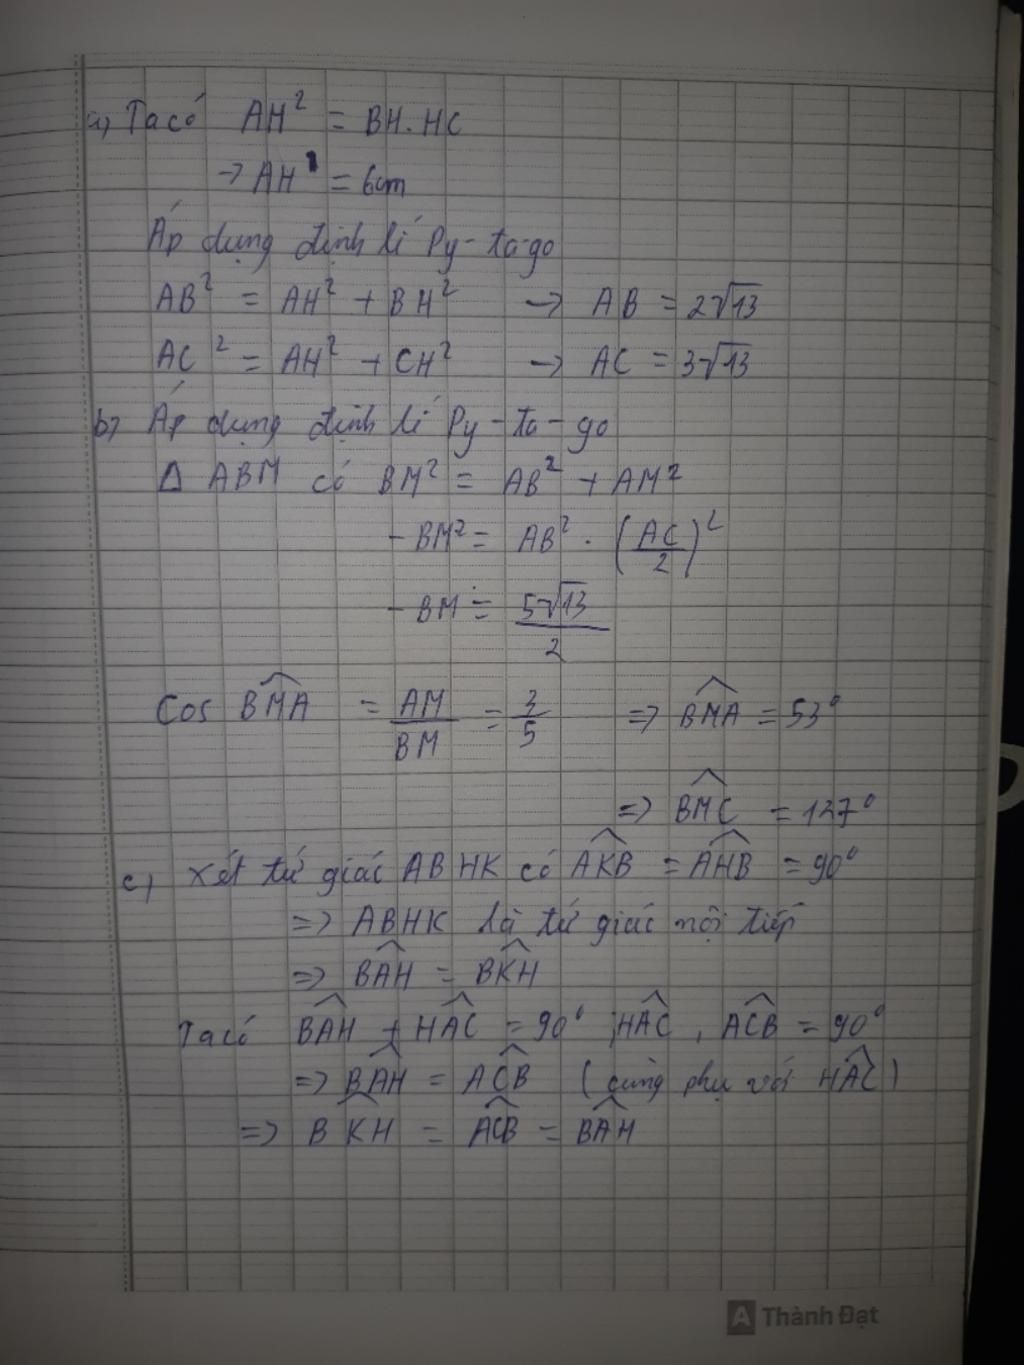 a, Ta có AH² = BH.HC
→ AH = 6cm
Áp dụng định lí Py-ta-go
AB² = AH² + BH² → AB = 2√13
AC² = AH² + CH² → AC = 3√13
b, Áp dụng định lí Py-ta-go
Δ ABM có BM² = AB² + AM²
- BM² = AB² · (AC/2)²
- BM = 5√13/2
Cos BMA = AM/BM = 3/5 ⇒ BMA = 53°
⇒ BMC = 127°
c, Xét tứ giác ABHK có AKB = AHB = 90°
⇒ ABHK là tứ giác nội tiếp
⇒ BAH = BKH
Ta có BAH + HAC = 90° ; HAC , ACB = 90°
⇒ BAH = ACB (cùng phụ với HAC)
⇒ BKH = ACB = BAH
A Thành Đạt